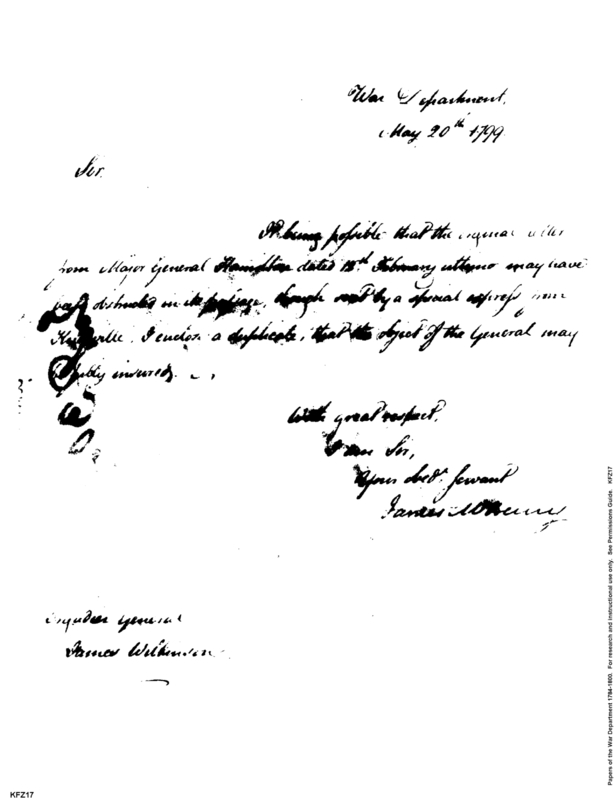 War Department,
May 20th 1799.
Sir.
It being possible that the
from Major General dated February ultimo may have
been obstructed in passage, though sent by a special express from
Knoxville. I enclose a duplicate, that the object of the General may
insured.
With great respect,
I am Sir,
Your obedt. servant
James McHenry
General
James Wilkinson
Papers of the War Department 1784-1800. For research and instructional use only. See Permissions Guide. KFZ17
KFZ17